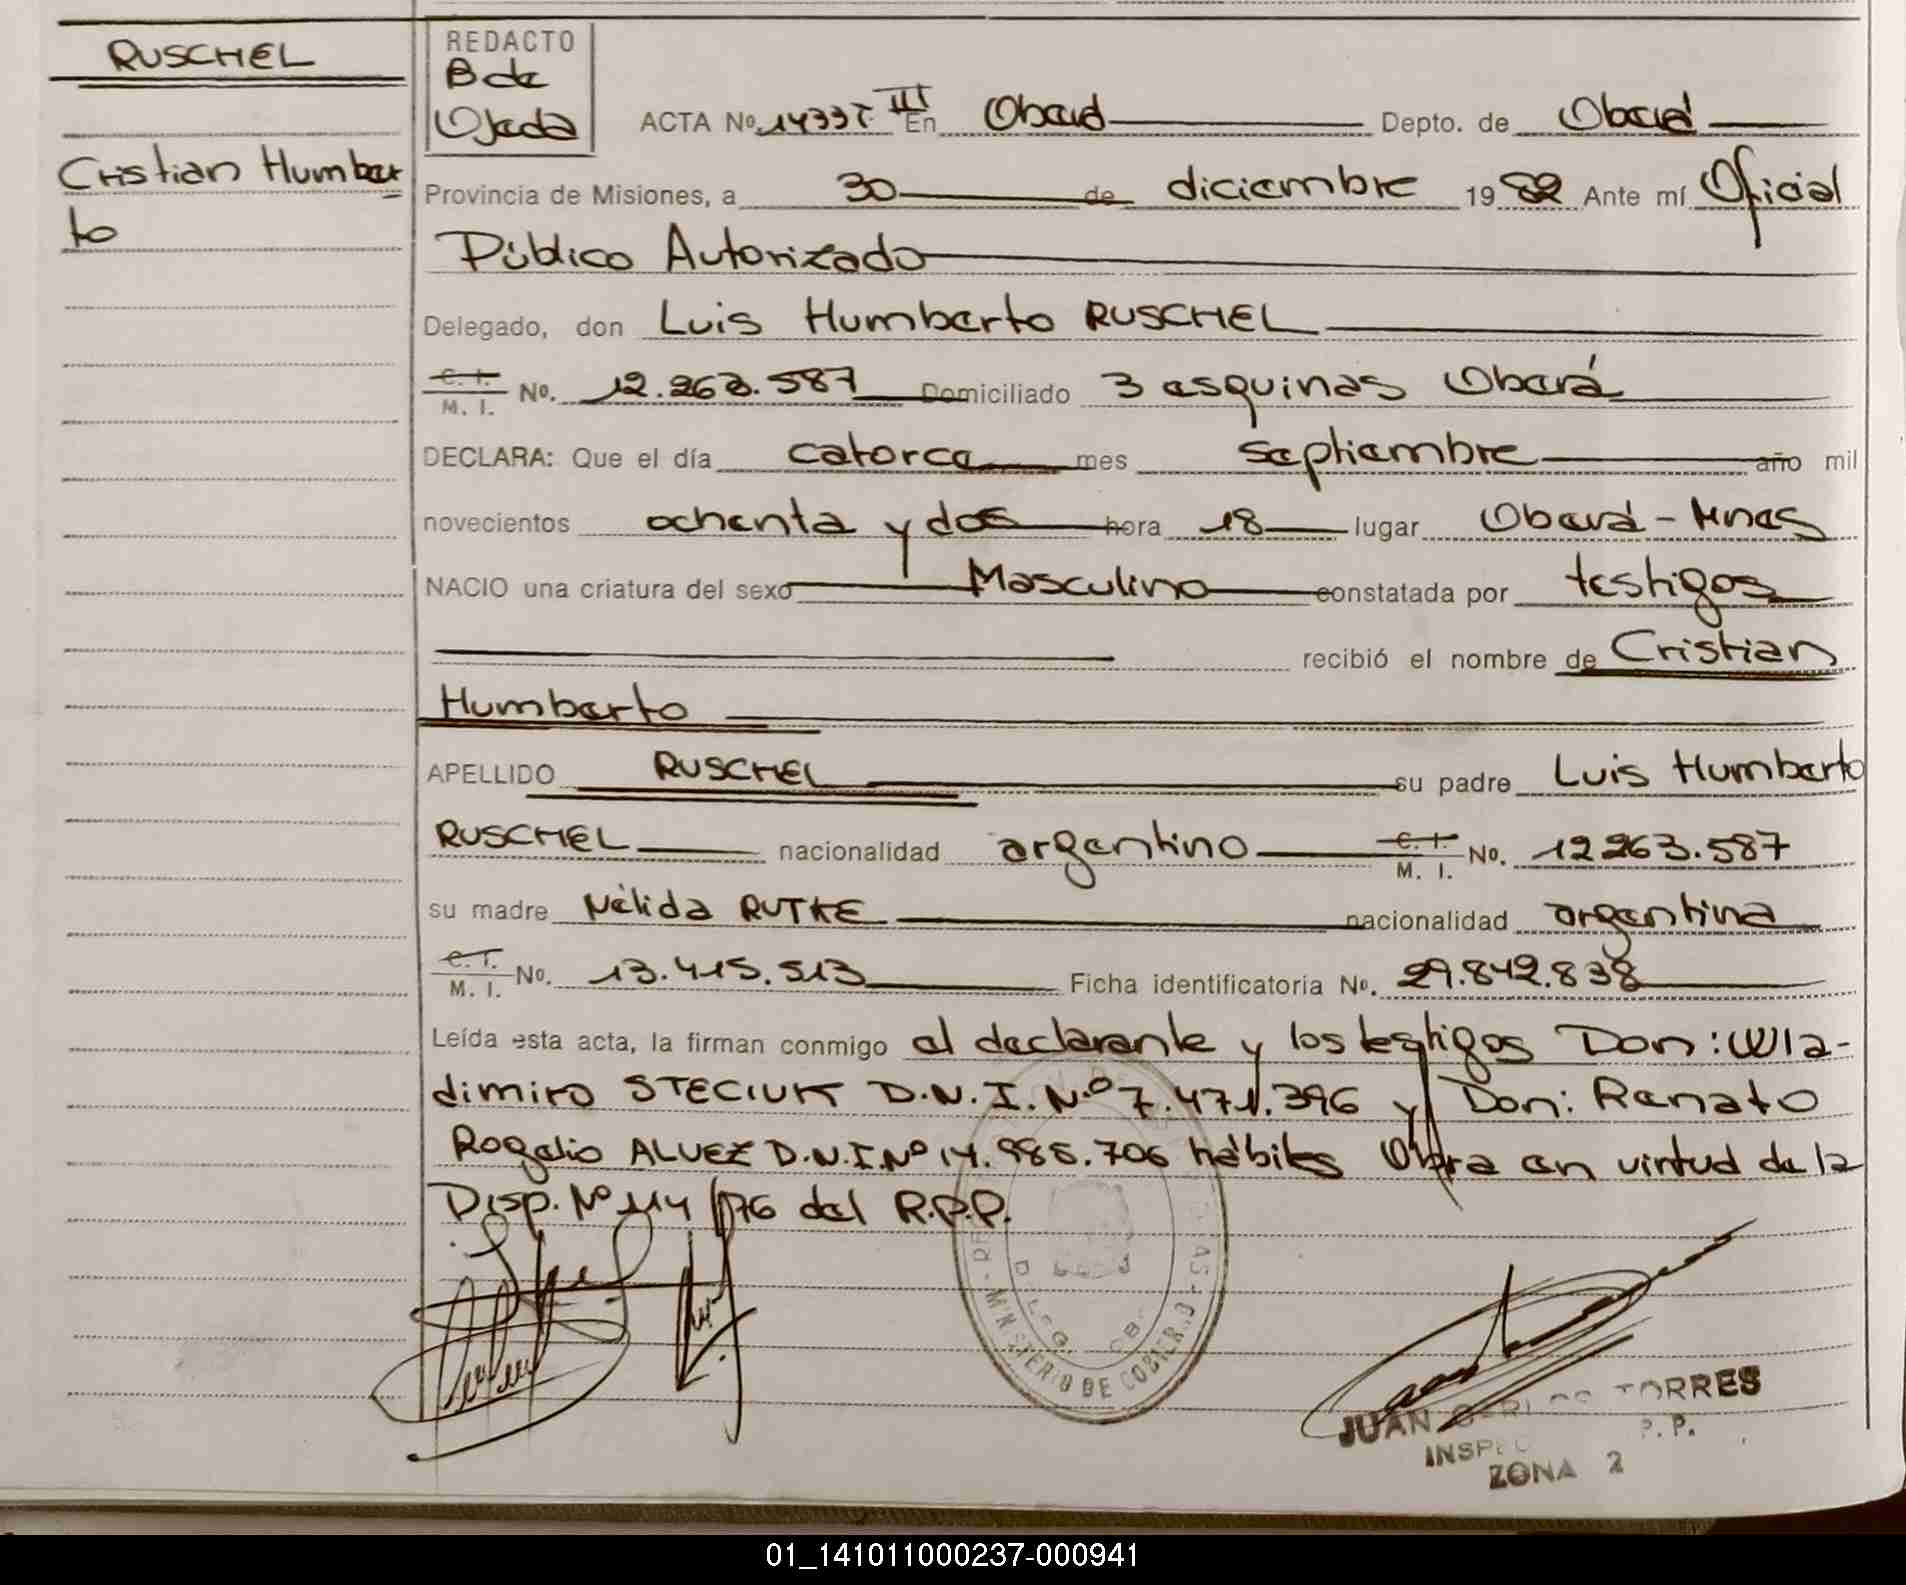 RUSCHEL
Cristian Humber
to
REDACTO
B de
Ojeda
ACTA No. 1433 T. III En Oberá Depto. de Oberá
Provincia de Misiones, a 30 de diciembre 1982 Ante mí Oficial
Público Autorizado
Delegado, don Luis Humberto RUSCHEL
C. I. M. I. No. 12.263.587 Domiciliado 3 esquinas Oberá
DECLARA: Que el día catorce mes septiembre año mil
novecientos ochenta y dos hora 18 lugar Oberá - Mnes
NACIO una criatura del sexo Masculino constatada por testigos
recibió el nombre de Cristian
Humberto
APELLIDO RUSCHEL su padre Luis Humberto
RUSCHEL nacionalidad argentino C. I. M. I. No. 12.263.587
su madre Nélida RUTKE nacionalidad argentina
C. I. M. I. No. 13.415.513 Ficha identificatoria No. 29.842.838
Leída esta acta, la firman conmigo el declarante y los testigos Don: Wla-
dimiro STECIUK D.N.I. Nº 7.471.396 y Don: Renato
Rogelio ALVEZ D.N.I. Nº 14.985.706 hábiles Obra en virtud de la
Disp. Nº 114/76 del R.P.P.
MINISTERIO DE GOBIERNO
JUAN CARLOS TORRES
P. P.
ZONA 2
01_141011000237-000941